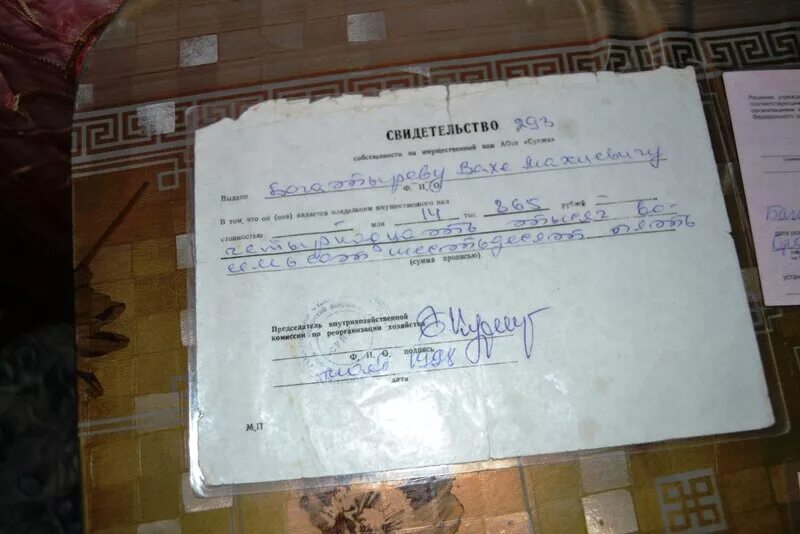 СВИДЕТЕЛЬСТВО 293
собственности на имущественный пай АОзт «Сунжа»
Выдано Богатыреву Вахе Махиевичу
Ф. И. О.
В том, что он (она) является владельцем имущественного пая
стоимостью или 14 тыс. 865 рублей
четырнадцать тысяч во-
семьсот шестьдесят пять
(сумма прописью)
Председатель внутрихозяйственной
комиссии по реорганизации хозяйства
Ф. И. О. подпись
1998
дата
М.П
Решение учрежд
соответствующи
организациями
Федерального
дата ро
уста